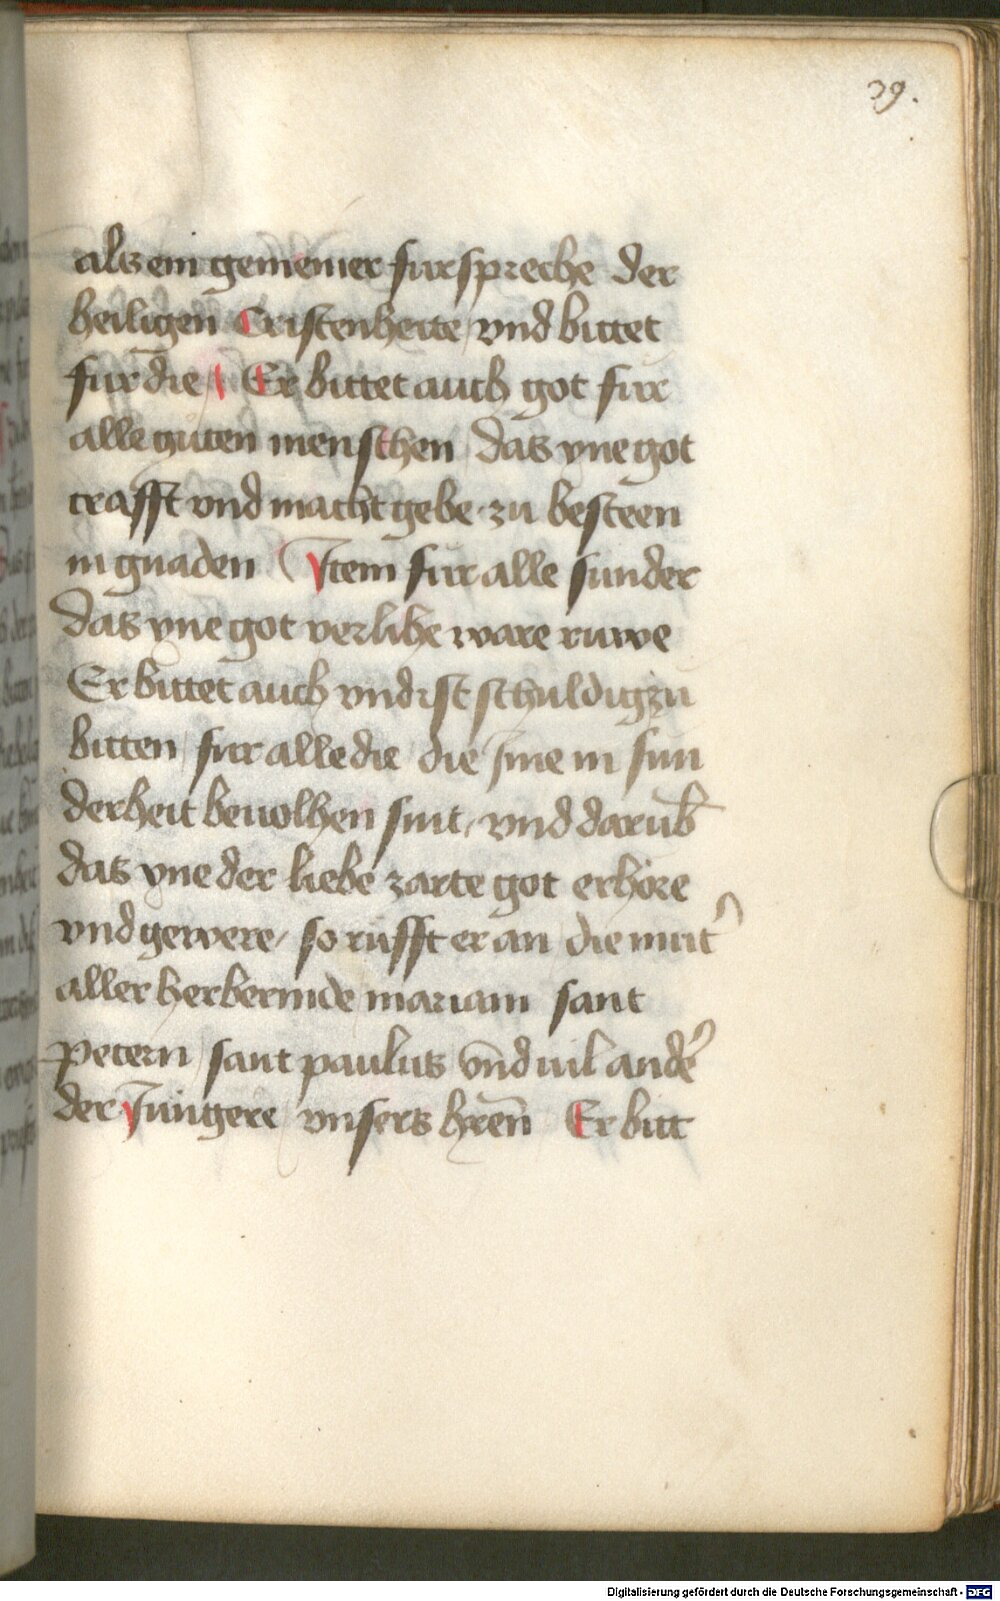 39.
als ein gemeiner furspreche der
heiligen Cristenheite vnd bittet
fur die Er bittet auch got fur
alle guten menschen das yne got
crafft vnd macht gebe zu besteen
in gnaden Jtem fur alle sunder
das yne got verlihe ware ruwe
Er bittet auch vnd ist schuldig zu
bitten fur alle die die Jme in sun
derheit beuolhen sint, vnd darub̄
das yne der liebe zarte got erhöre
vnd gewere / so rufft er an die mut̓
aller herbermde mariam sant
petern sant paulus vn̄d uil ande̓
der Jungere vnsers hren̄ Er bitt
Digitalisierung gefördert durch die Deutsche Forschungsgemeinschaft - DFG